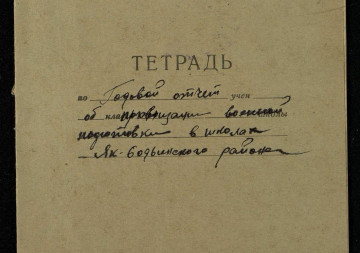 ТЕТРАДЬ
по Годовой отчет учен
об организации военной
подготовки в школах
Як-Бодьинского района